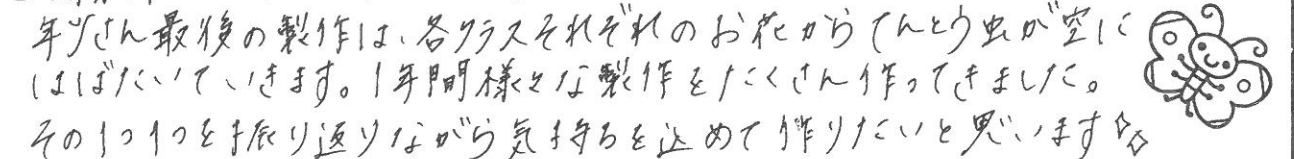 年少さん最後の製作は、各クラスそれぞれのお花からてんとう虫が空に
はばたいていきます。1年間様々な製作をたくさん作ってきました。
その1つ1つを振り返りながら気持ちを込めて作りたいと思います